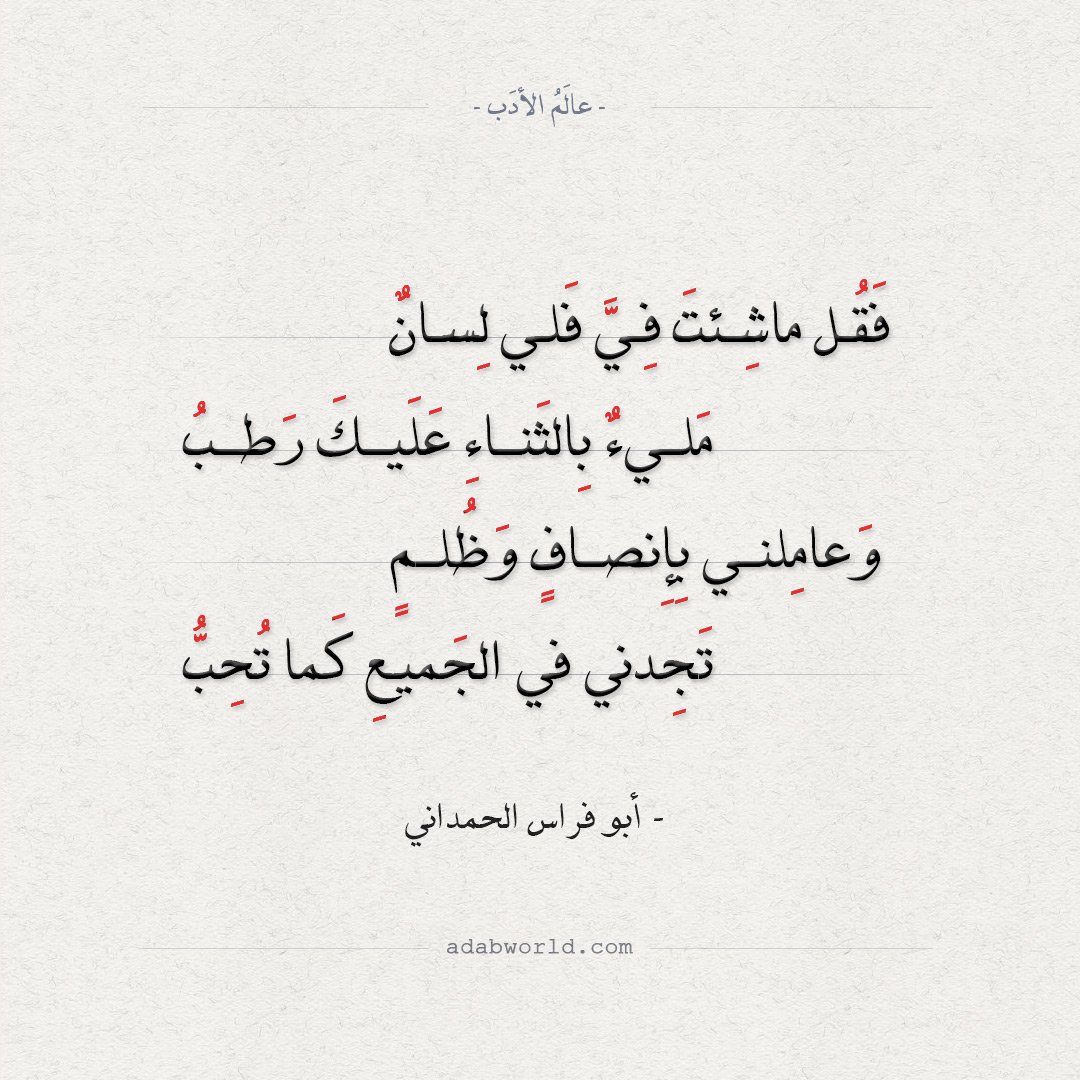 - عالَمُ الأدَب -
فَقُل ماشِئتَ فِيَّ فَلي لِسانٌ
مَليءٌ بِالثَناءِ عَلَيكَ رَطبُ
وَعامِلني بِإِنصافٍ وَظُلمٍ
تَجِدني في الجَميعِ كَما تُحِبُّ
- أبو فراس الحمداني
adabworld.com